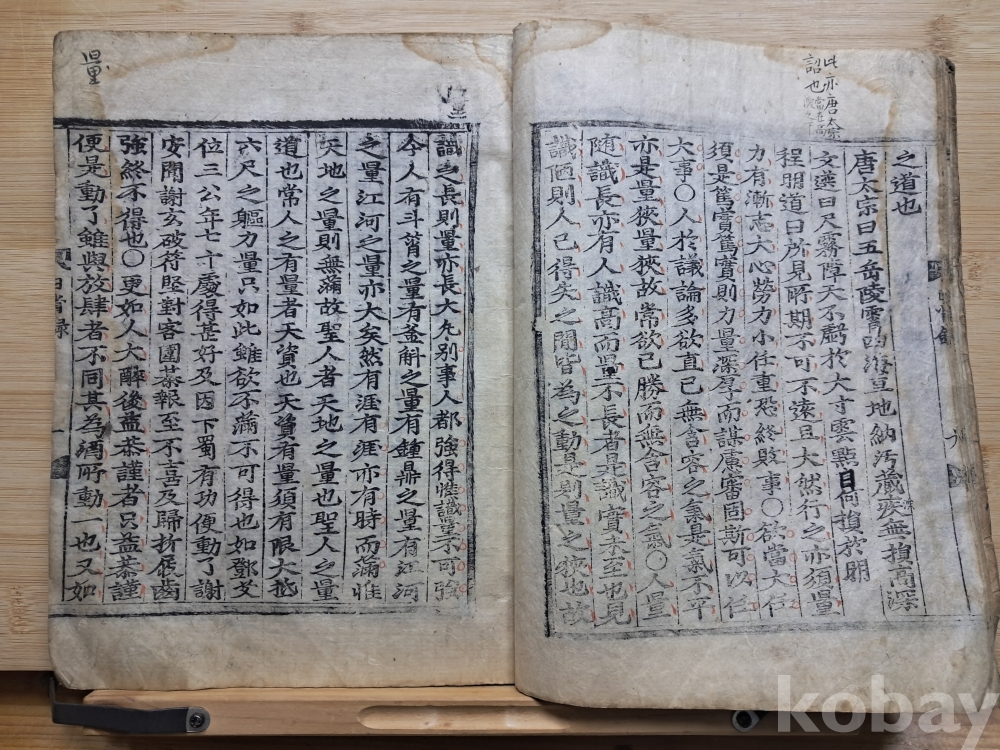 此亦唐太宗
詔也
之道也
唐太宗曰五岳陵霄四海亘地納汚藏疾無損高深
文漢曰尺霧障天不虧於大寸雲點日何損於明
程明道曰所見所期不可不遠且大然行之亦須量
力有漸志大心勞力小任重恐終敗事〇欲當大任
須是篤實篤實則力量深厚而謀慮審固斯可以任
大事〇人於議論多欲直已無含容之氣是氣不平
亦是量狹量狹故常欲已勝而無含容之氣〇人量
随識長亦有人識高而量不長者是識實未至也見
識陋則人已得失之間皆為之動是別量之狹也故
量
量
識之長則量亦長大凡別事人都強得惟識量不可強
今人有斗筲之量有釜斛之量有鍾鼎之量有江河
之量江河之量亦大矣然有涯有涯亦有時而滿惟
天地之量則無滿故聖人者天地之量也聖人之量
道也常人之有量者天資也天資有量須有限大抵
六尺之軀力量只如此雖欲不滿不可得也如鄧艾
位三公年七十處得甚好及因下蜀有功便動了謝
安聞謝玄破苻堅對客圍棊報至不喜及歸折屐齒
強終不得也〇更如人大醉後益恭謹者只益恭謹
便是動了雖與放肆者不同其為酒所動一也又如
kobay